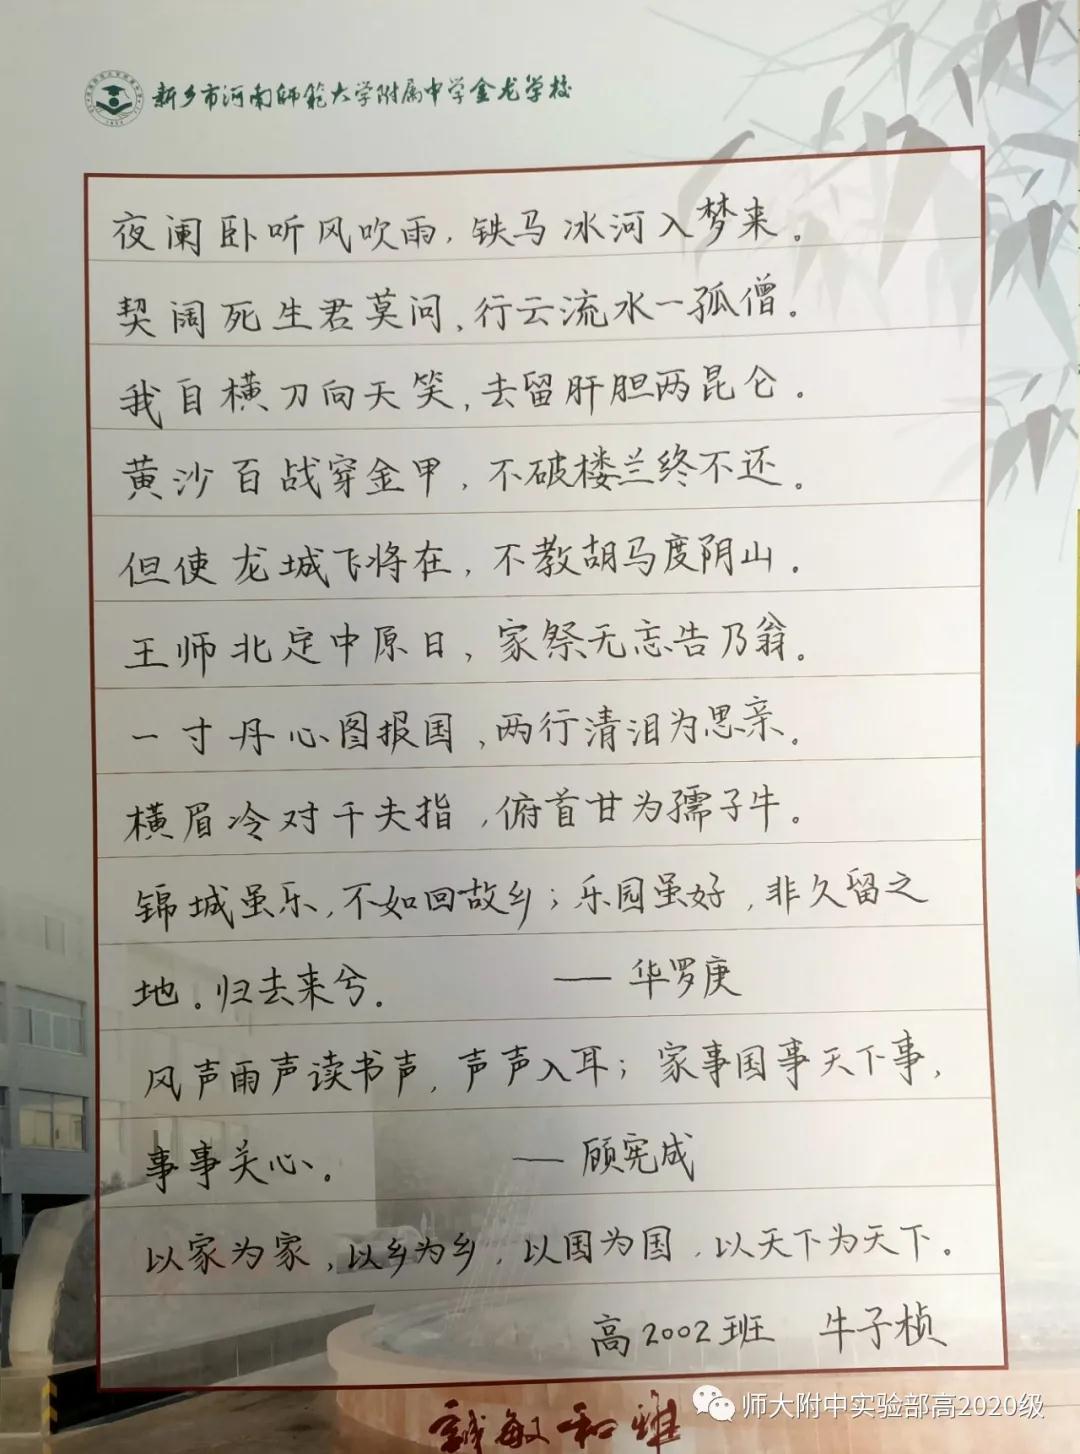 新乡市河南师范大学附属中学金龙学校
夜阑卧听风吹雨，铁马冰河入梦来。
契阔死生君莫问，行云流水一孤僧。
我自横刀向天笑，去留肝胆两昆仑。
黄沙百战穿金甲，不破楼兰终不还。
但使龙城飞将在，不教胡马度阴山。
王师北定中原日，家祭无忘告乃翁。
一寸丹心图报国，两行清泪为思亲。
横眉冷对千夫指，俯首甘为孺子牛。
锦城虽乐，不如回故乡；乐园虽好，非久留之
地。归去来兮。 ——华罗庚
风声雨声读书声，声声入耳；家事国事天下事，
事事关心。 ——顾宪成
以家为家，以乡为乡，以国为国，以天下为天下。
高2002班 牛子桢
誠敏和雅
师大附中实验部高2020级